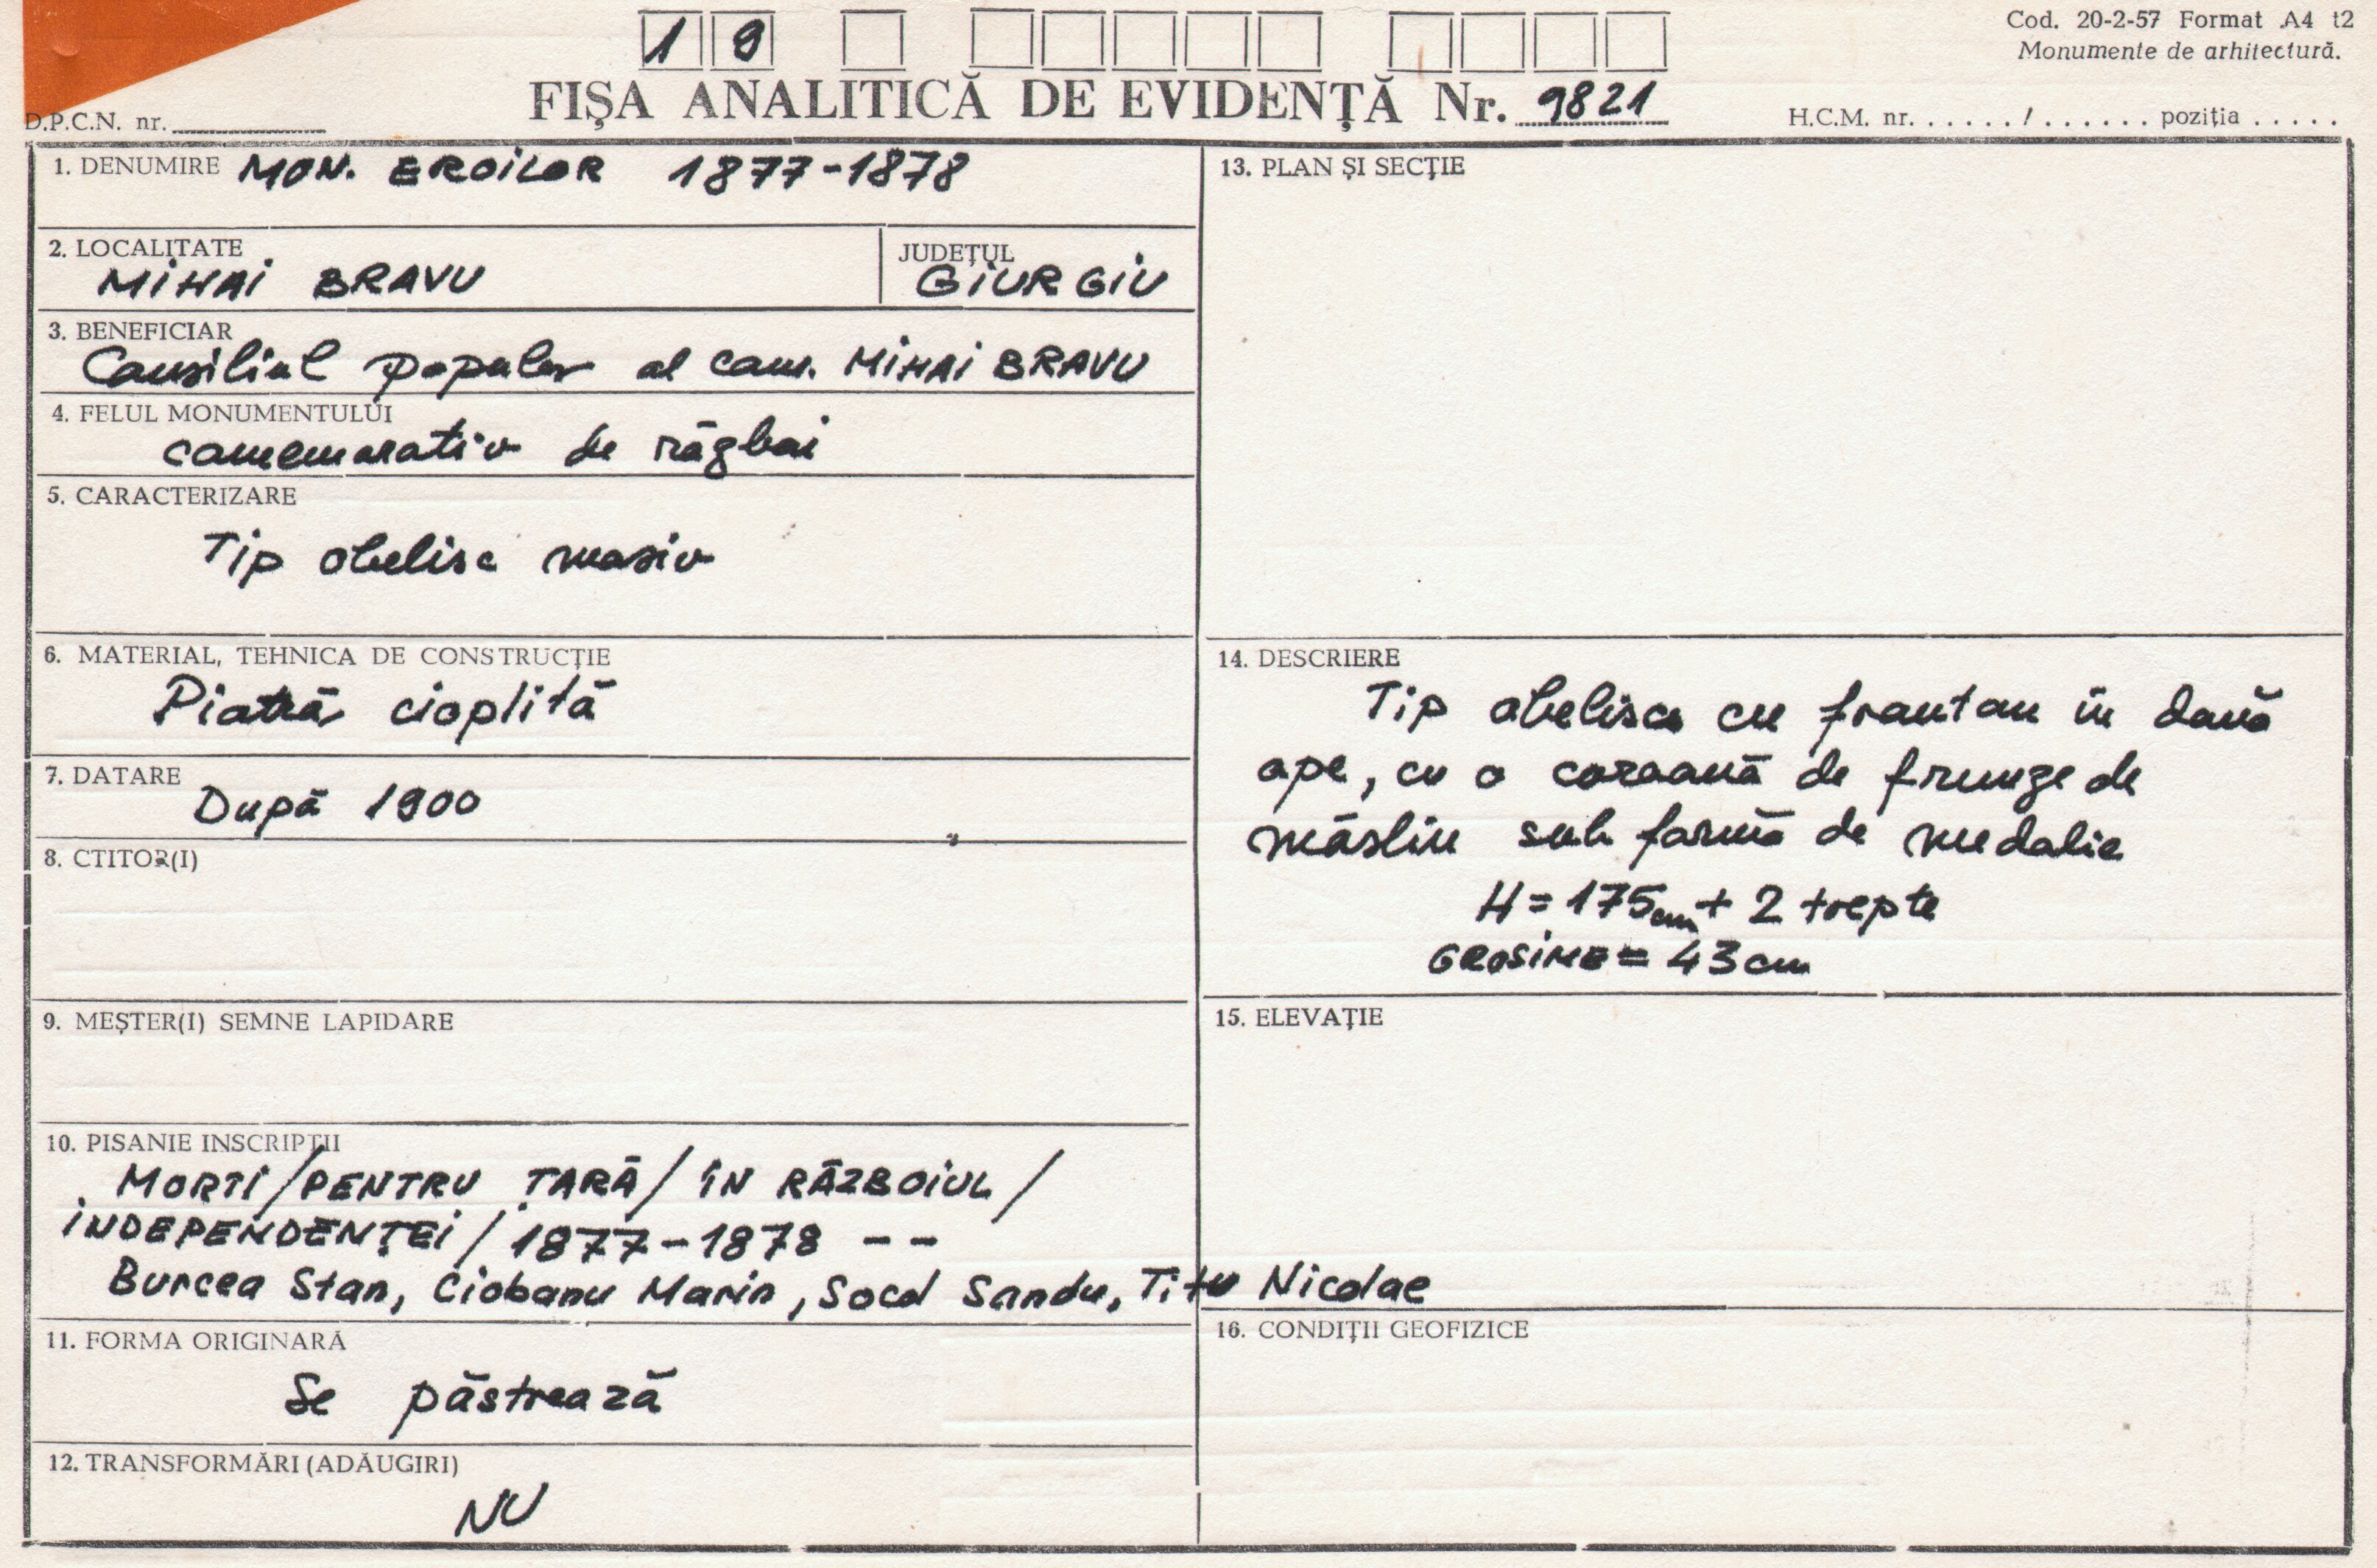 1 9
Cod. 20-2-57 Format A4 t2
Monumente de arhitectură.
FIȘA ANALITICĂ DE EVIDENȚĂ Nr. 9821
D.P.C.N. nr.
H.C.M. nr. ...... / ...... poziția .....
1. DENUMIRE MON. EROILOR 1877-1878
2. LOCALITATE
MIHAI BRAVU
JUDEȚUL
GIURGIU
3. BENEFICIAR
Consiliul popular al com. MIHAI BRAVU
4. FELUL MONUMENTULUI
comemorativ de război
5. CARACTERIZARE
Tip obelisc masiv
6. MATERIAL, TEHNICA DE CONSTRUCȚIE
Piatră cioplită
7. DATARE
După 1900
8. CTITOR(I)
9. MEȘTER(I) SEMNE LAPIDARE
10. PISANIE INSCRIPȚII
MORȚI / PENTRU ȚARĂ / ÎN RĂZBOIUL /
INDEPENDENȚEI / 1877-1878 --
Burcea Stan, Ciobanu Marin, Socol Sandu, Titu Nicolae
11. FORMA ORIGINARĂ
Se păstrează
12. TRANSFORMĂRI (ADĂUGIRI)
NU
13. PLAN ȘI SECȚIE
14. DESCRIERE
Tip obelisc cu fronton în două
ape, cu o coroană de frunze de
măslin sub formă de medalie
H = 175 cm + 2 trepte
GROSIME = 43 cm
15. ELEVAȚIE
16. CONDIȚII GEOFIZICE